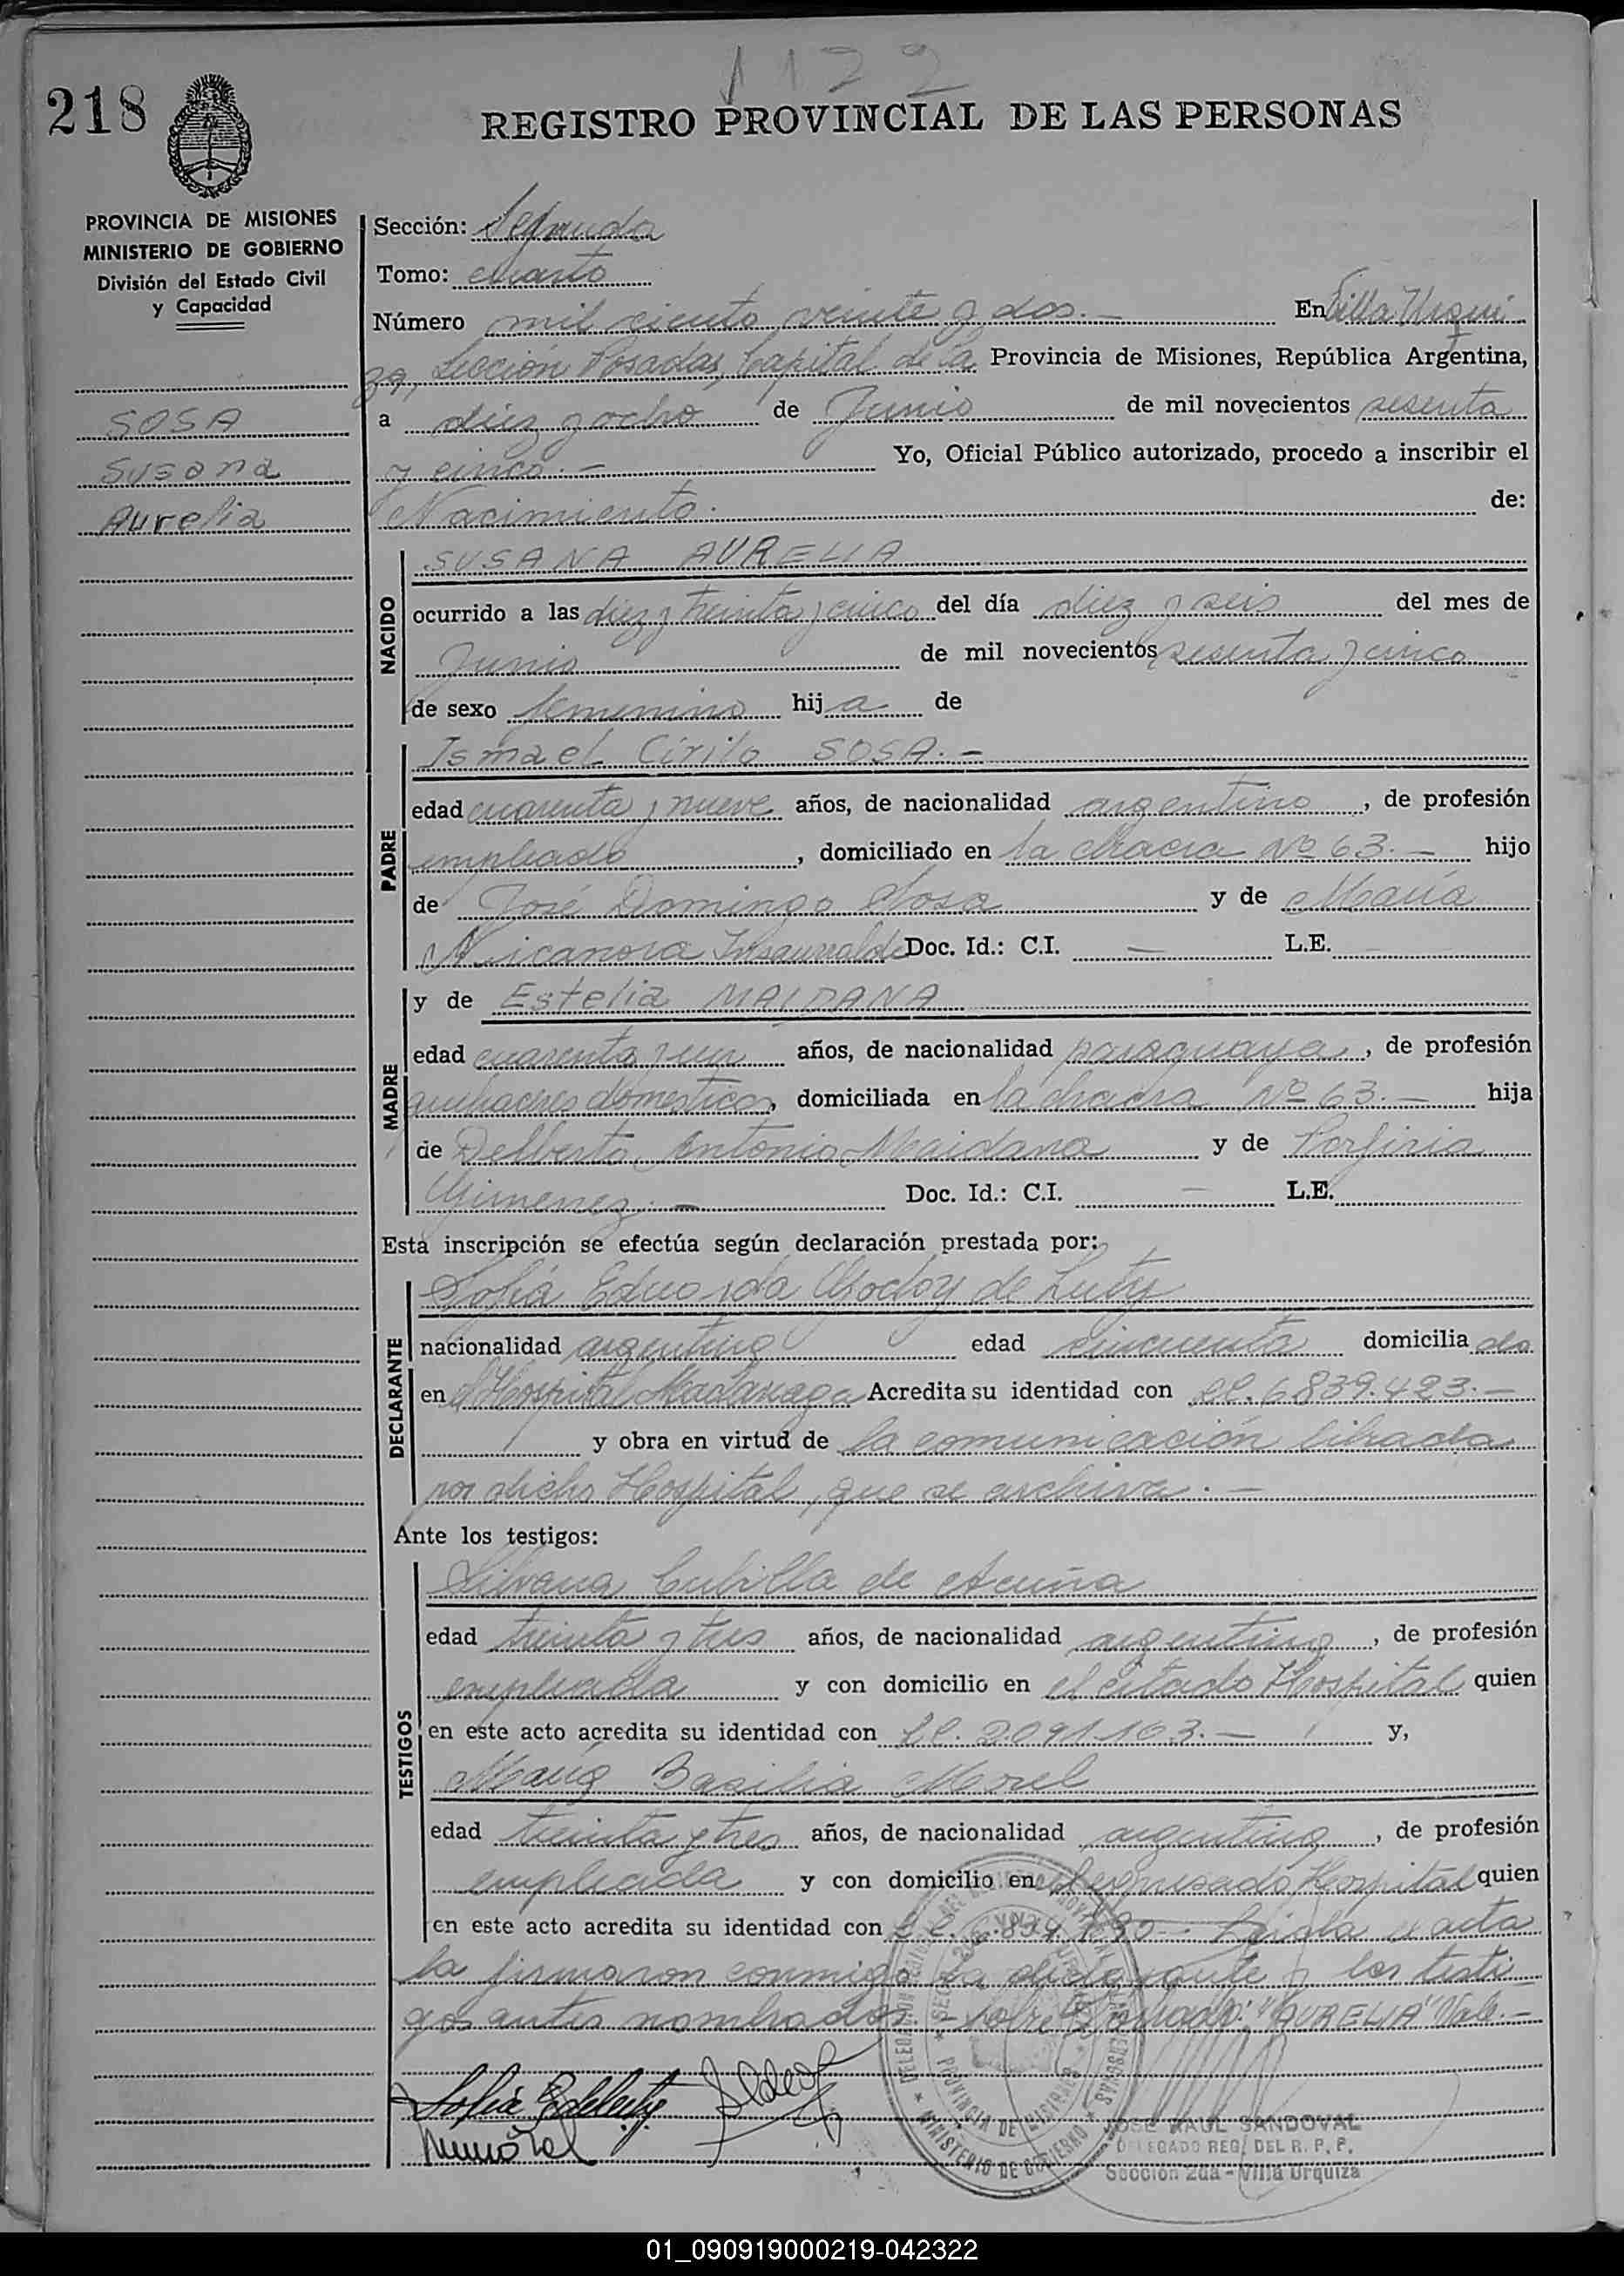 1122
218
REGISTRO PROVINCIAL DE LAS PERSONAS
PROVINCIA DE MISIONES
MINISTERIO DE GOBIERNO
División del Estado Civil
y Capacidad
SOSA
Susana
Aurelia
Sección: Segunda
Tomo: cuarto
Número mil ciento veinte y dos.— En Villa Urqui
za, Sección Posadas, Capital de la Provincia de Misiones, República Argentina,
a diez y ocho de Junio de mil novecientos sesenta
y cinco.— Yo, Oficial Público autorizado, procedo a inscribir el
Nacimiento. de:
NACIDO
SUSANA AURELIA
ocurrido a las diez y treinta y cinco del día diez y seis del mes de
Junio de mil novecientos sesenta y cinco
de sexo femenino hija de
PADRE
Ismael Cirilo SOSA.—
edad cuarenta y nueve años, de nacionalidad argentino, de profesión
empleado, domiciliado en la chacra Nº 63.— hijo
de José Domingo Sosa y de María
Nicanora Insaurralde Doc. Id.: C.I. — L.E.
MADRE
y de Estelia MAIDANA
edad cuarenta y un años, de nacionalidad paraguaya, de profesión
quehaceres domesticos, domiciliada en la chacra Nº 63.— hija
de Delberto Antonio Maidana y de Porfiria
Gimenez.— Doc. Id.: C.I. — L.E.
Esta inscripción se efectúa según declaración prestada por:
DECLARANTE
Sofia Eduarda Godoy de Luty
nacionalidad argentina edad cincuenta domiciliada
en el Hospital Madariaga Acredita su identidad con LC. 6839.423.—
y obra en virtud de la comunicación librada
por dicho Hospital, que se archiva.—
Ante los testigos:
TESTIGOS
Silvana Cubilla de Acuña
edad treinta y tres años, de nacionalidad argentina, de profesión
empleada y con domicilio en el citado Hospital quien
en este acto acredita su identidad con LC. 2.091.103.— y,
María Basilia Morel
edad treinta y tres años, de nacionalidad argentina, de profesión
empleada y con domicilio en el expresado Hospital quien
en este acto acredita su identidad con Leida el acta
la firmaron conmigo la declarante y los testi
gos antes nombrados. Sobre borrado: "AURELIA" Vale.—
MINISTERIO DE GOBIERNO
PROVINCIA DE MISIONES
JOSE RAUL SANDOVAL
DELEGADO REG. DEL R. P. P.
Sección 2da - Villa Urquiza
01_090919000219-042322